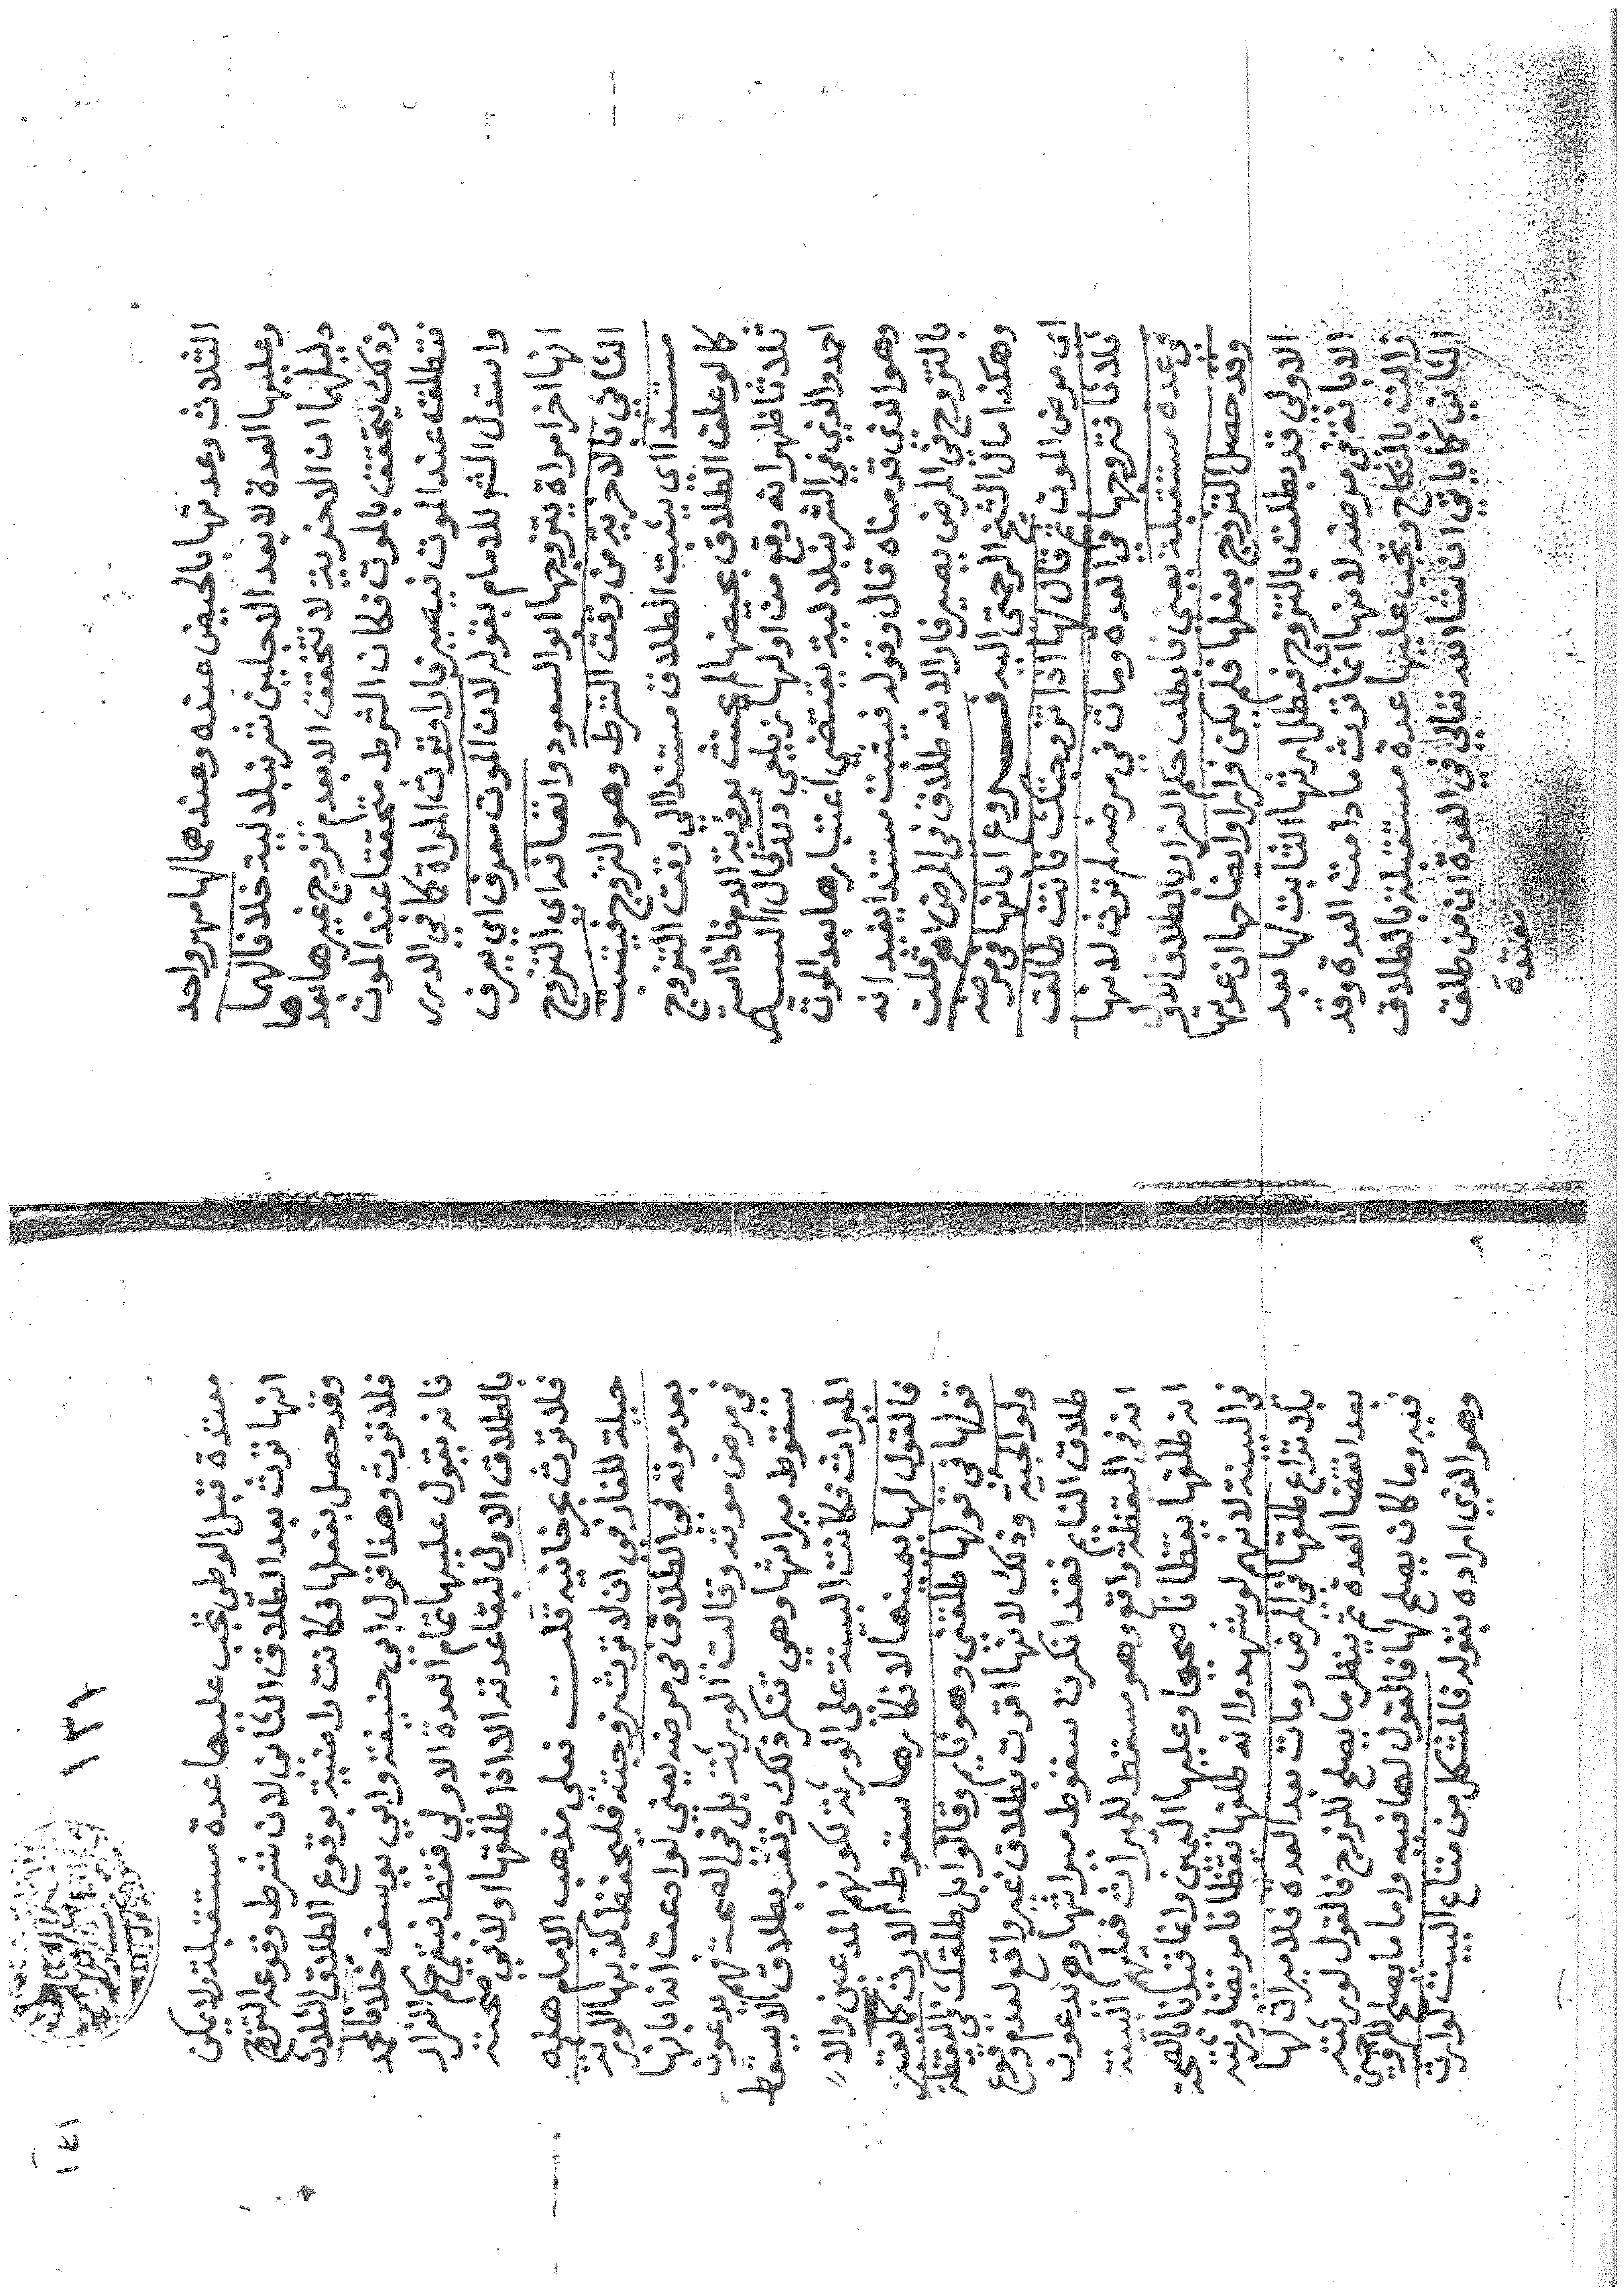 الثلاث وعدتها بالحيض عنده وعندهما لها مهر واحد
وعليها العدة لا بعد الاجلين شرنبلالية خلافا لهما
دليلهما ان الاخرية لا تتحقق الا بعدم تزوج غيرها بعدها
وذلك يتحقق بالموت فكان الشرط متحققا عند الموت
فتطلق عند الموت فيصير فارا وترث المراة كما في الدرر
واستدل الشم للامام بقوله لان الموت معرف اي يعرف
انها اخر امراة يتزوجها ابو السعود واتصافه اي التزوج
الثاني بالاخرية من وقت الشرط وهو التزوج فيثبت
مستندا اي يثبت الطلاق مستندا الى وقت التزوج
كما لو علق الطلاق بحيضها لم يحنث برؤية الدم فاذا استمر
ثلاثا ظهر انه وقع من اولها زيلعي ولذا قال السيد
احمد والذي في الشرنبلالية يقتضي اعتبارها بعد الموت
وهو الذي قدمناه قال وقوله فيثبت مستندا يفيد انه
بالتزوج في المرض يصير فارا لانه طلاق في المرض اهـ قلت
وهكذا مال الشيخ الرحمتي اليه فروع ابانها في مرضه
اي مرض الموت ثم قال لها اذا تزوجتك فانت طالق
ثلاثا فتزوجها في العدة ومات في مرضه لم ترث لانها
في عدة مستقبلة يعني فابطلت حكم الفرار بالطلاق الاول
وقد حصل التزوج بفعلها فلم يكن فرارا وايضاحها ان عدتها
الاولى قد بطلت بالتزوج فبطل ارثها الثابت لها بعد
الابانة في مرضه لانها انما ترث ما دامت العدة وقد
زالت بالنكاح وتجب عليها عدة مستقبلة بالطلاق
الثاني كما ياتي ان شاء الله تعالى في العدة ان من طلق
معتدة
١٣٩
١٤١
معتدة قبل الوطي تجب عليها عدة مستقبلة ولا يمكن
انها ترث بعد الطلاق الثاني لان شرط وقوعه التزوج
وقد حصل بفعلها فكانت راضية بوقوع الطلاق الثلاث
فلا ترث وهذا قول ابي حنيفة وابي يوسف خلافا لمحمد
فانه يقول عليها تمام العدة الاولى فقط فبقي حكم الفرار
بالطلاق الاول لبقاء عدته الا اذا طلقها اولا في صحته
فلا ترث بحر خانيه قلت فعلى مذهب الامام هذه
حيلة للفار في ان لا ترث زوجته فليحفظ كذبها الورثة
بعد موته في الطلاق في مرضه يعني لو ادعت انه ابانها
في مرض موته وقالت الورثة بل في الصحة فهم يدعون
سقوط ميراثها وهي تنكر ذلك وتقر بطلاق لا يسقط
الميراث فكانت البينة على الورثة لكونهم المدعين والا
فالقول لها بيمينها لانكارها سقوط الارث كما
قولها في قولها طلقني وهو نايم وقالوا بل طلقك في اليقظة
ولوالجيه وذلك لانها اقرت بطلاق غير واقع لعدم وقوع
طلاق النايم فقد انكرت سقوط ميراثها وهم يدعون
انه في اليقظة واقع وهو مسقط للميراث فعليهم البينة
انه طلقها يقظانا صحيحا وعليها اليمين وانما قيدنا بالصحة
في البينة لانهم لو شهدوا انه طلقها يقظانا مريضا ورثته
بلا نزاع طلقها في المرض ومات بعد العدة فلا ميراث لها
بعد انقضاء العدة ثم ينظر ما يصلح للزوج فالقول لورثته
فيه وما كان يصلح لها فالقول لها فيه واما ما يصلح للزوجين
وهو الذي اراده بقوله فالمشكل من متاع البيت لوارث